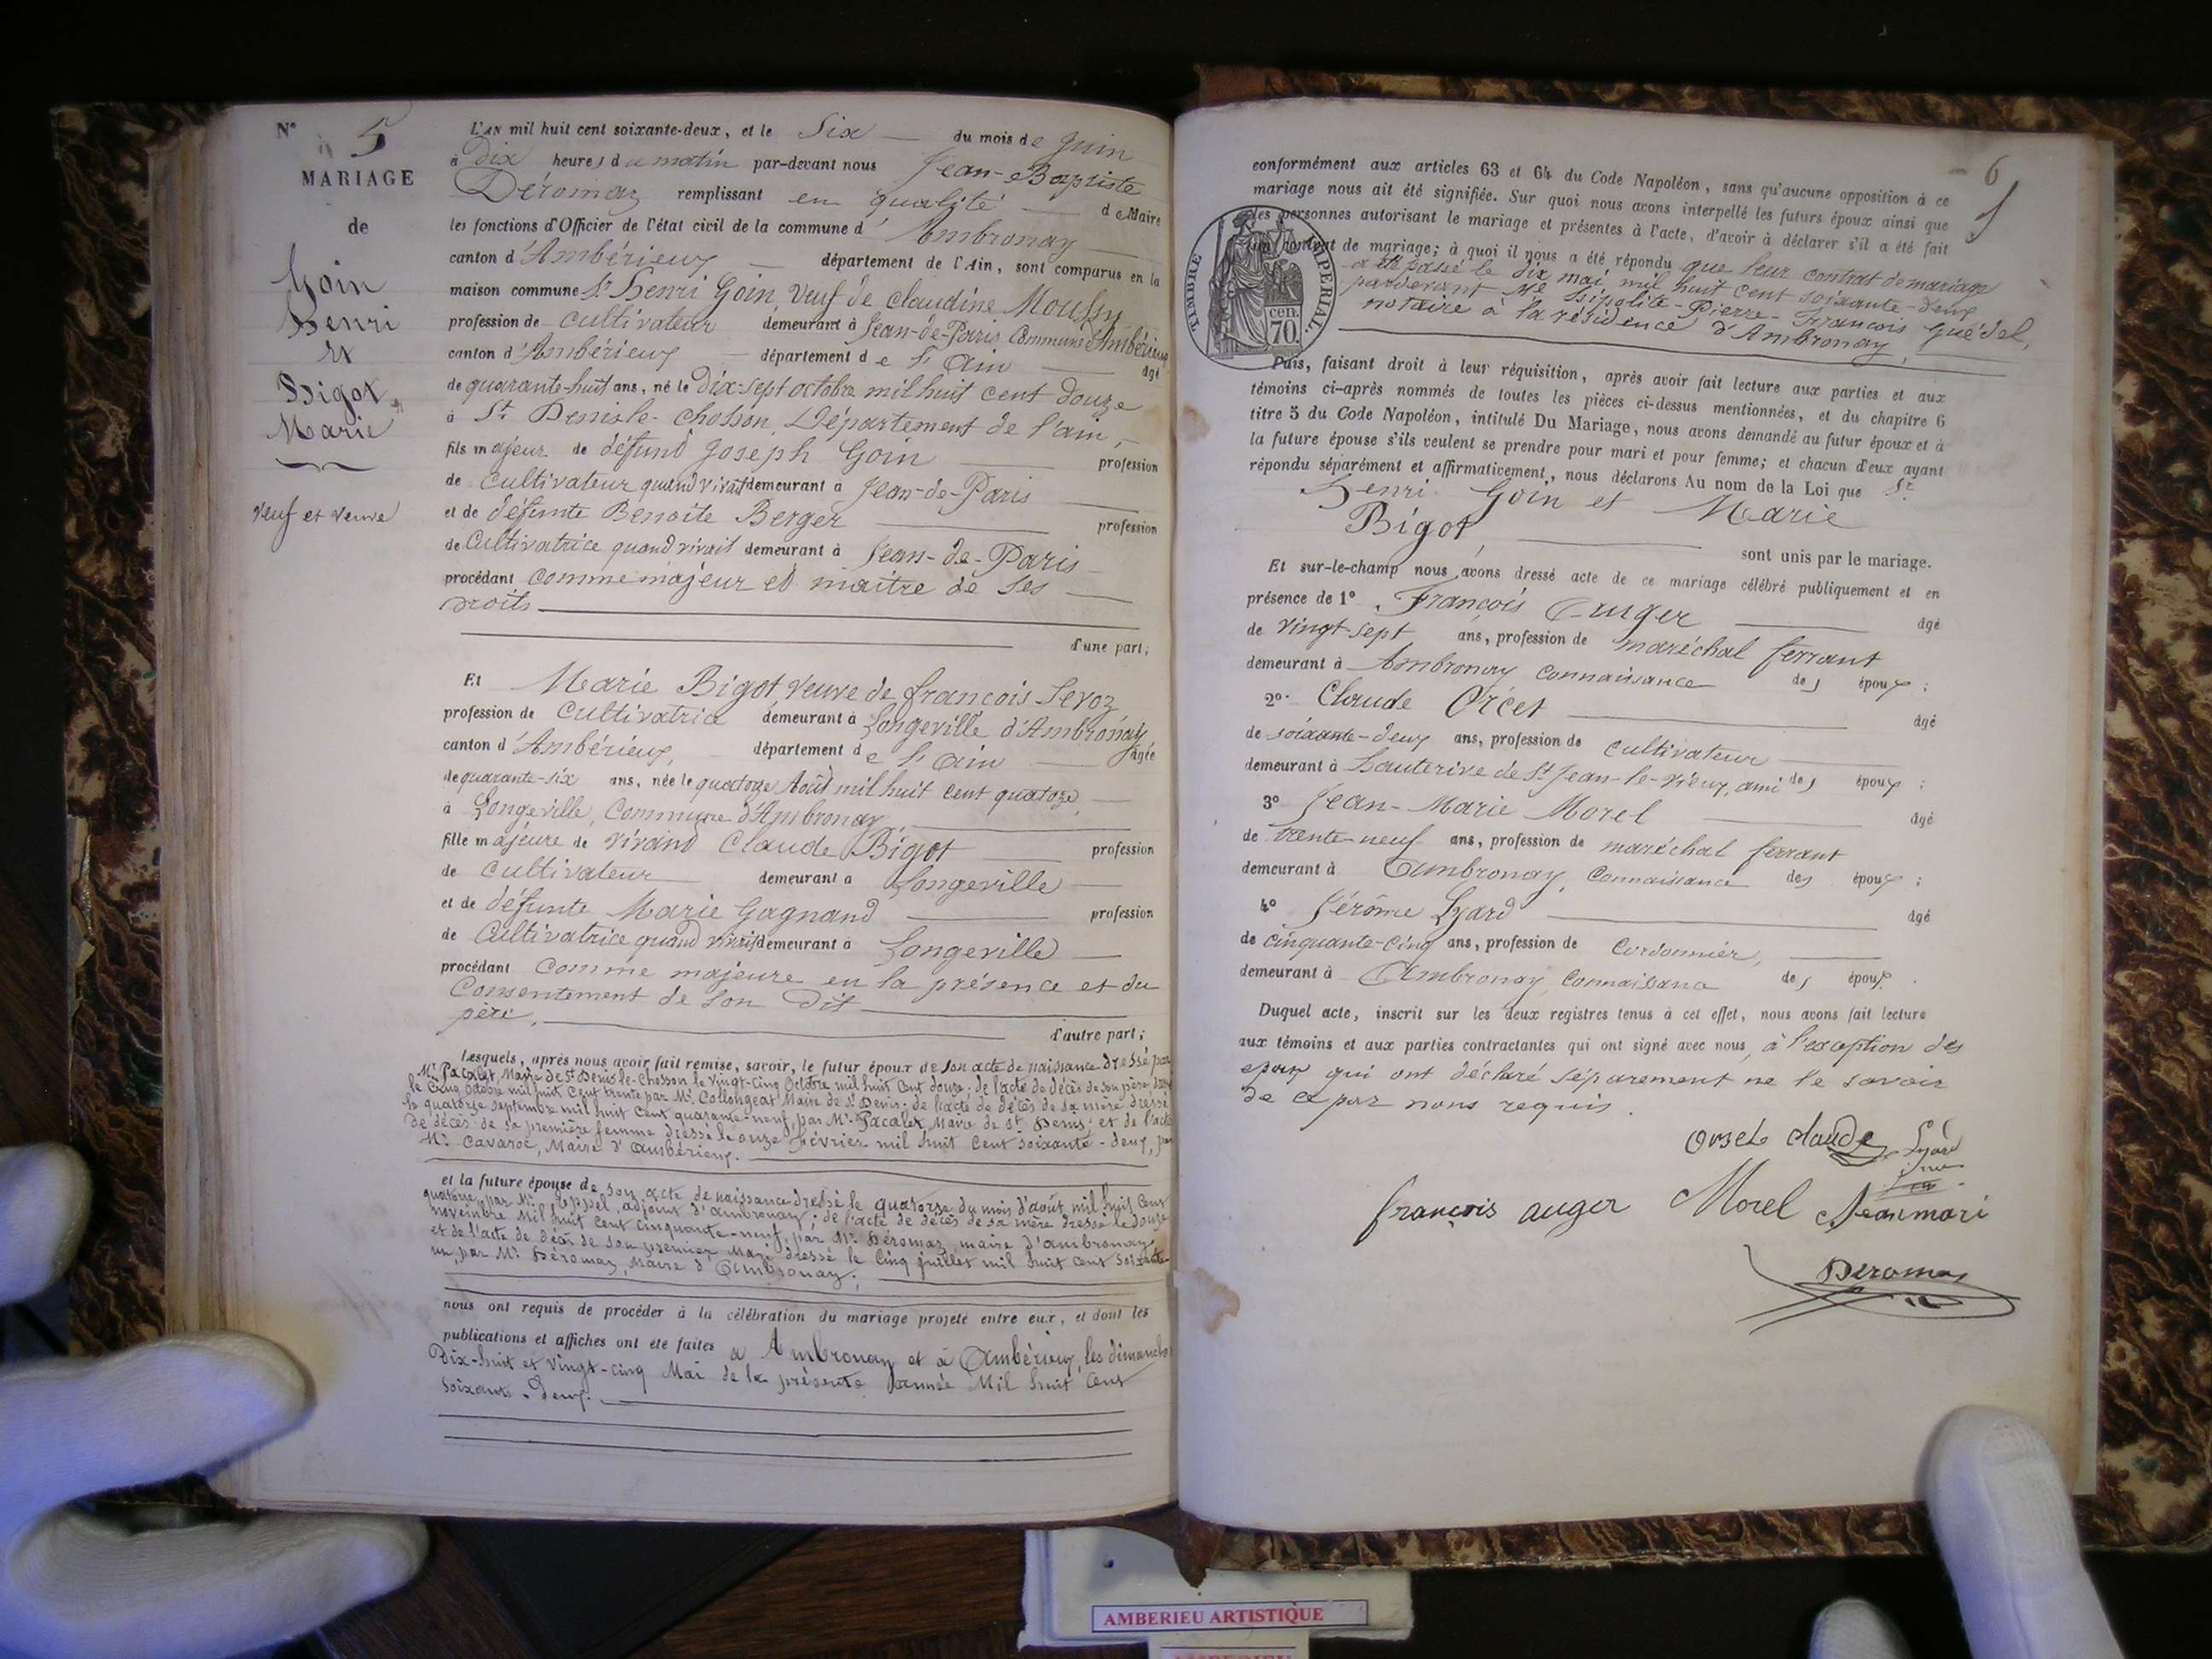 N° 5
MARIAGE
de
Goin
Henri
Et
Bigot
Marie
Veuf et Veuve
L'AN mil huit cent soixante-deux, et le Six du mois de Juin
à Dix heures du matin par-devant nous Jean-Baptiste
Déromaz remplissant en qualité de Maire
les fonctions d'Officier de l'état civil de la commune d' Ambronay
canton d'Ambérieux département de l'Ain, sont comparus en la
maison commune Sr Henri Goin, Veuf de Claudine Moussy
profession de Cultivateur demeurant à Jean-de-Paris Commune d'Ambérieux
canton d'Ambérieux département de l'Ain âgé
de quarante-huit ans, né le Dix-sept octobre mil huit cent douze
à St Denis-le-Chosson, Département de l'ain,
fils majeur de défund Joseph Goin profession
de Cultivateur quand vivait demeurant à Jean-de-Paris
et de défunte Benoite Berger profession
de Cultivatrice quand vivait demeurant à Jean-de-Paris
procédant Comme majeur et maitre de ses
droits
d'une part;
Et Marie Bigot veuve de françois Sevoz
profession de Cultivatrice demeurant à Longeville d'Ambronay
canton d'Ambérieux, département de l'Ain âgée
de quarante-six ans, née le quatorze Août mil huit cent quatorze,
à Longeville, Commune d'Ambronay
fille majeure de vivand Claude Bigot profession
de Cultivateur demeurant à Longeville
et de défunte Marie Gagnand profession
de Cultivatrice quand vivait demeurant à Longeville
procédant Comme majeure en la présence et du
Consentement de son dit
père,
d'autre part;
Lesquels, après nous avoir fait remise, savoir, le futur époux de son acte de naissance dressé par
Mr. Pacalet, Maire de St Denis-le-Chosson le vingt-cinq Octobre mil huit cent douze; de l'acte de décès de son père dressé
le Cinq Octobre mil huit cent trente par Mr. Collongeat Maire de St Denis; de l'acte de décès de sa mère dressé
le quatorze septembre mil huit cent quarante-neuf, par Mr. Pacalet, Maire de St Denis; et de l'acte
de décès de sa première femme dressé le onze Février mil huit cent soixante-deux, par
Mr. Cavaroc, Maire d'Ambérieux.
et la future épouse de son acte de naissance dressé le quatorze du mois d'août, mil huit cent
quatorze par Mr. adjoint d'ambronay; de l'acte de décès de sa mère dressé le douze
novembre Mil huit cent cinquante-neuf, par Mr. Déromaz, maire d'ambronay;
et de l'acte de décès de son premier mari dressé le Cinq juillet mil huit cent soixante-
un, par Mr. Déromaz, Maire d'Ambronay;
nous ont requis de procéder à la célébration du mariage projeté entre eux, et dont les
publications et affiches ont été faites à Ambronay et à Ambérieux, les dimanches
Dix-huit et Vingt-cinq Mai de la présente année Mil huit cent
soixante-deux.
6
conformément aux articles 63 et 64 du Code Napoléon, sans qu'aucune opposition à ce
mariage nous ait été signifiée. Sur quoi nous avons interpellé les futurs époux ainsi que
les personnes autorisant le mariage et présentes à l'acte, d'avoir à déclarer s'il a été fait
un contrat de mariage; à quoi il nous a été répondu que leur contrat de mariage
a été passé le dix mai, mil huit cent soixante-deux
pardevant Me Hipolite-Pierre-François Quédel,
notaire à la résidence d'Ambronay,
TIMBRE IMPERIAL
70 cen.
Puis, faisant droit à leur réquisition, après avoir fait lecture aux parties et aux
témoins ci-après nommés de toutes les pièces ci-dessus mentionnées, et du chapitre 6
titre 5 du Code Napoléon, intitulé Du Mariage, nous avons demandé au futur époux et à
la future épouse s'ils veulent se prendre pour mari et pour femme; et chacun d'eux ayant
répondu séparément et affirmativement, nous déclarons Au nom de la Loi que Sr
Henri Goin et Marie
Bigot
sont unis par le mariage.
Et sur-le-champ nous avons dressé acte de ce mariage célébré publiquement et en
présence de 1° François Auger âgé
de vingt-sept ans, profession de maréchal ferrant
demeurant à Ambronay Connaissance des époux;
2° Claude Orcet âgé
de soixante-deux ans, profession de Cultivateur
demeurant à Hauterive de St Jean-le-vieux, ami des époux;
3° Jean-Marie Morel âgé
de trente-neuf ans, profession de maréchal ferrant
demeurant à Ambronay, Connaissance des époux;
4° Jérôme Lyard âgé
de cinquante-cinq ans, profession de Cordonnier,
demeurant à Ambronay Connaissance des époux.
Duquel acte, inscrit sur les deux registres tenus à cet effet, nous avons fait lecture
aux témoins et aux parties contractantes qui ont signé avec nous, à l'exception des
époux qui ont déclaré séparement ne le savoir
de ce par nous requis.
orset claude Lyard
françois auger Morel Jeanmari
Deromas
AMBERIEU ARTISTIQUE
AMBERIEU